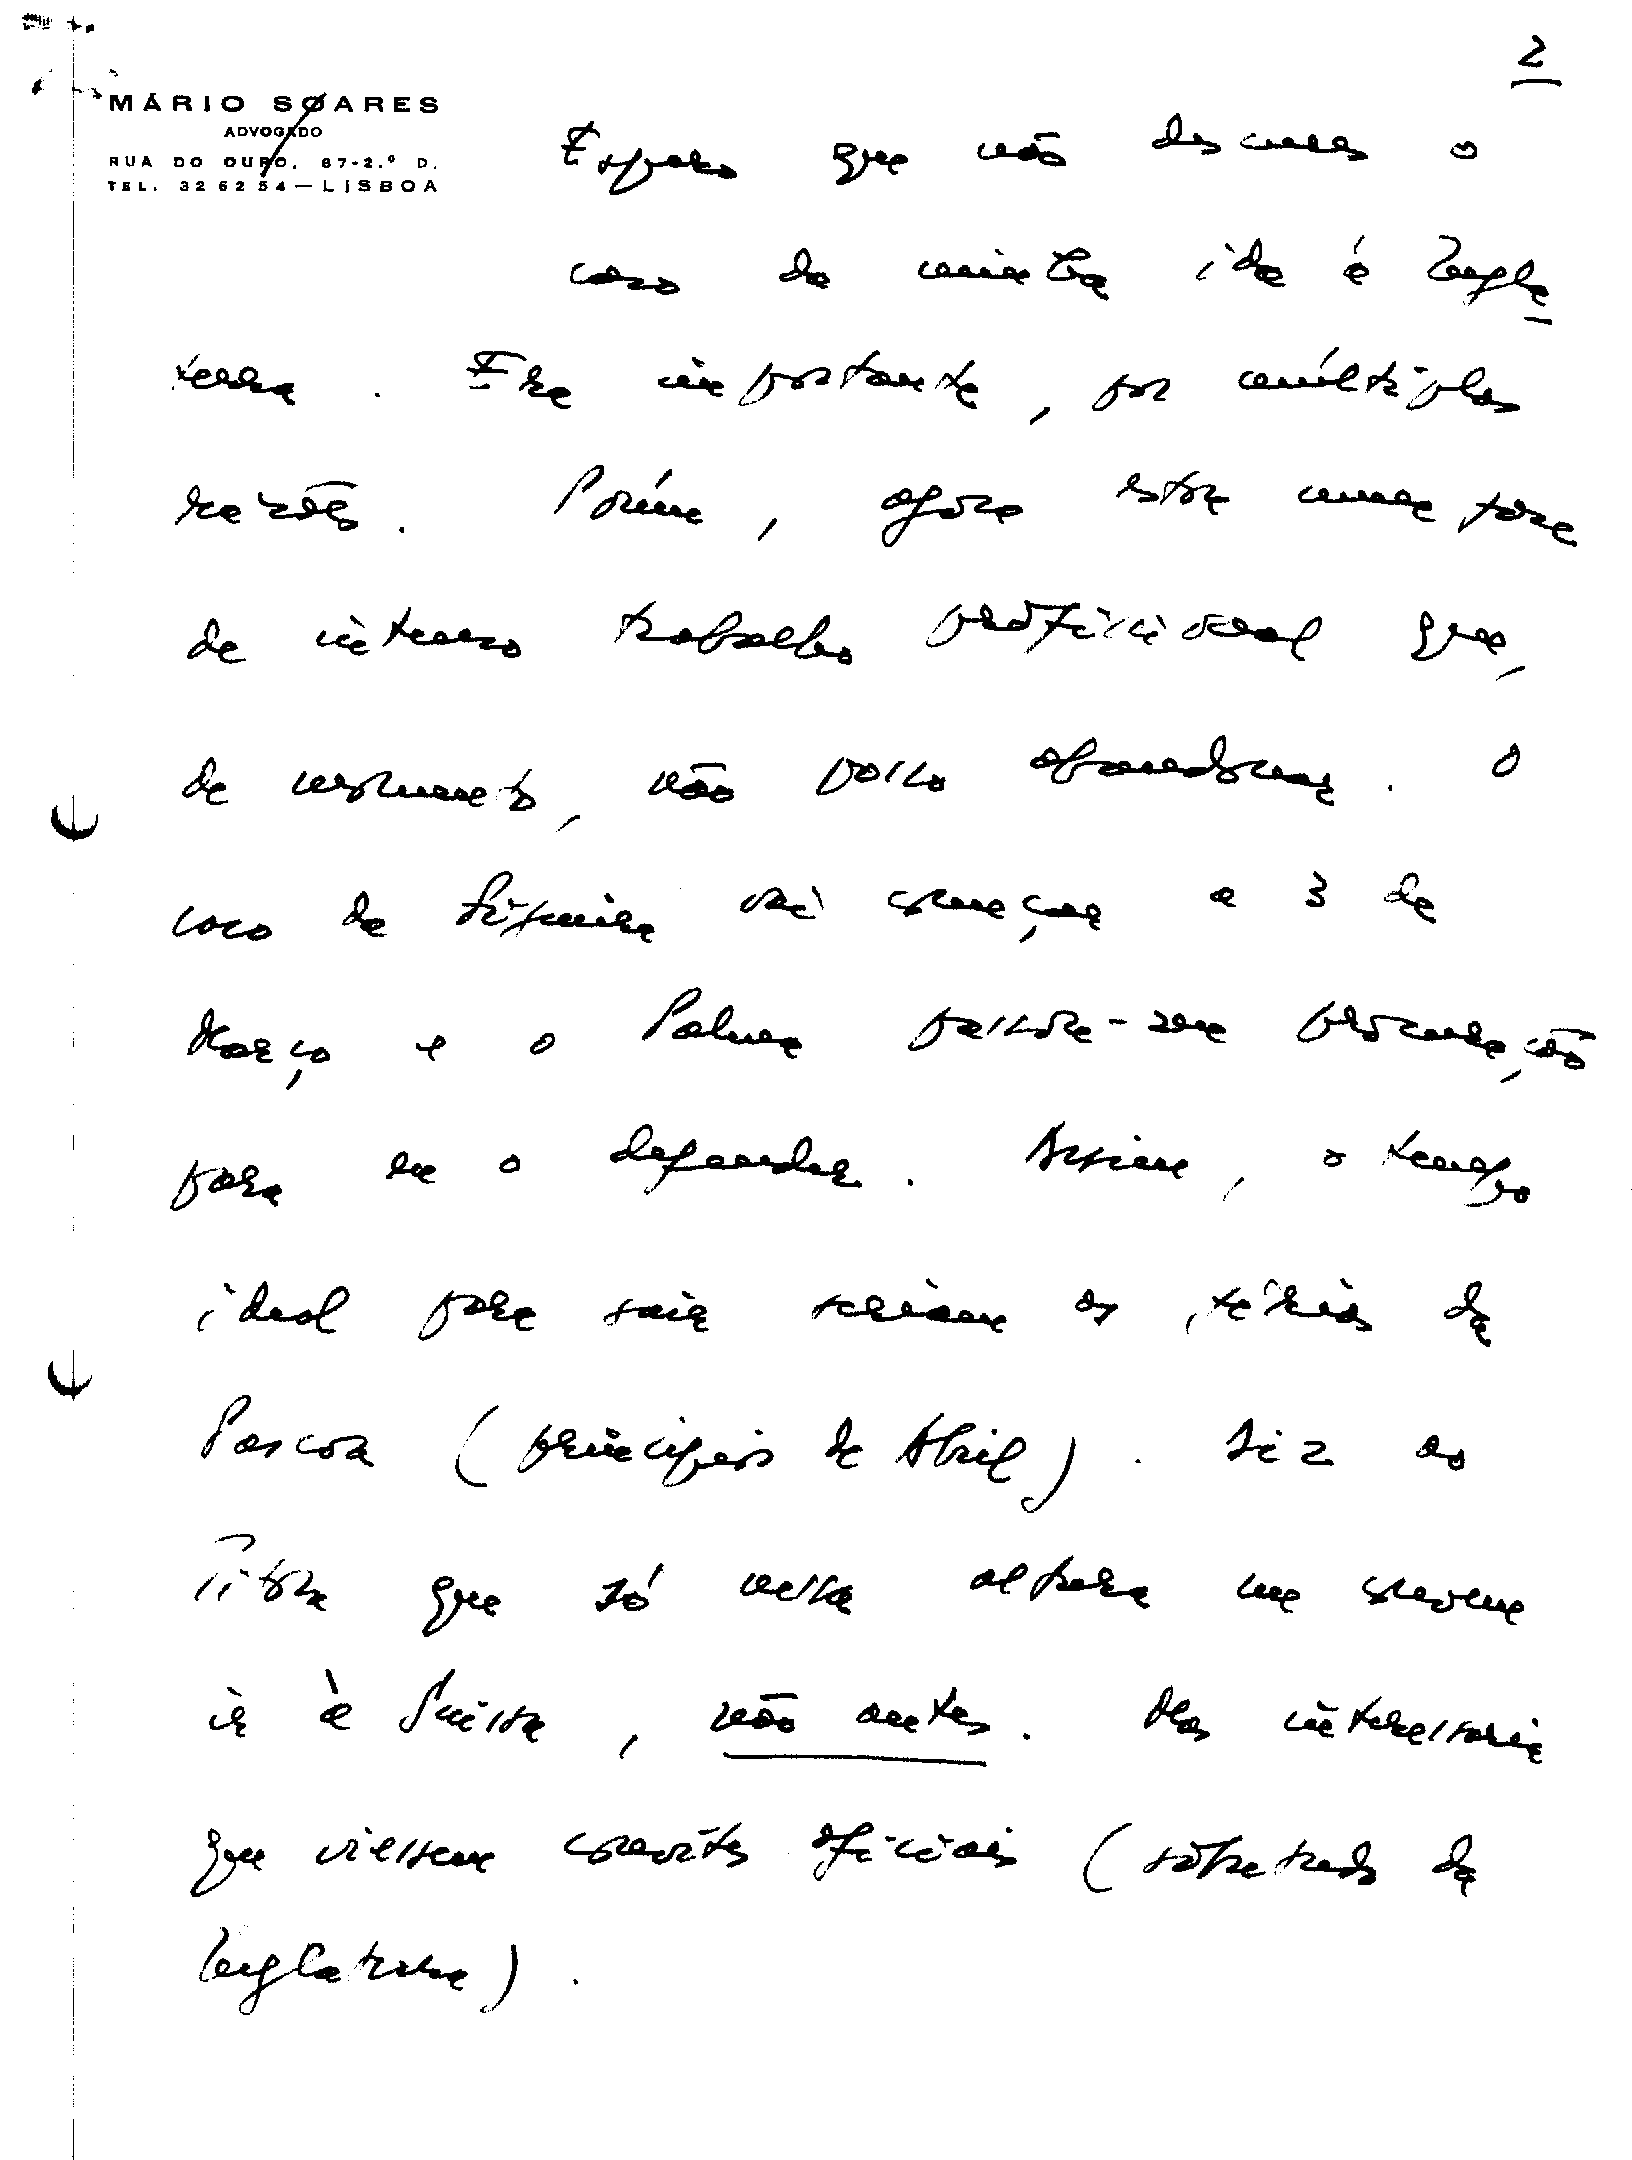 2
MÁRIO SOARES
ADVOGADO
RUA DO OURO, 87-2.º D.
TEL. 326254 — LISBOA
Espero que não descures o
caso da minha ida à Ingla
terra. Era importante, por múltiplas
razões. Porém, agora estou numa fase
de intenso trabalho profissional que,
de momento, não posso abandonar. O
caso da vai começar a 3 de
Março e o Palma passou-me procuração
para eu o defender. Assim, o tempo
ideal para sair seriam as férias da
Pascoa (princípios de Abril). Diz ao
que só nessa altura me convem
ir à Suissa, não antes. Mas interessaria
que viessem convites oficiais (sobretudo da
Inglaterra).